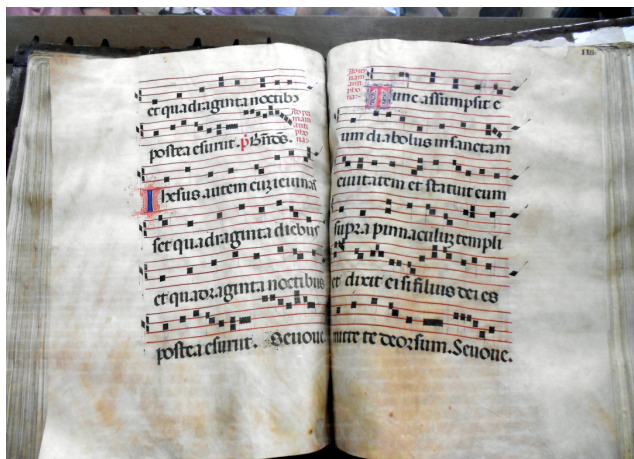 et quadraginta noctibꝫ
postea esuriit. p̄ Bn̄dō.
Ihesus autem cuz ieiunas
set quadraginta diebus
et quadraginta noctibus
postea esuriit. Seuoue.
Tunc assumpsit e
um diabolus in sanctam
ciuitatem et statuit eum
supra pinnaculuz templi
et dixit ei si filius dei es
mitte te deorsum. Seuoue.